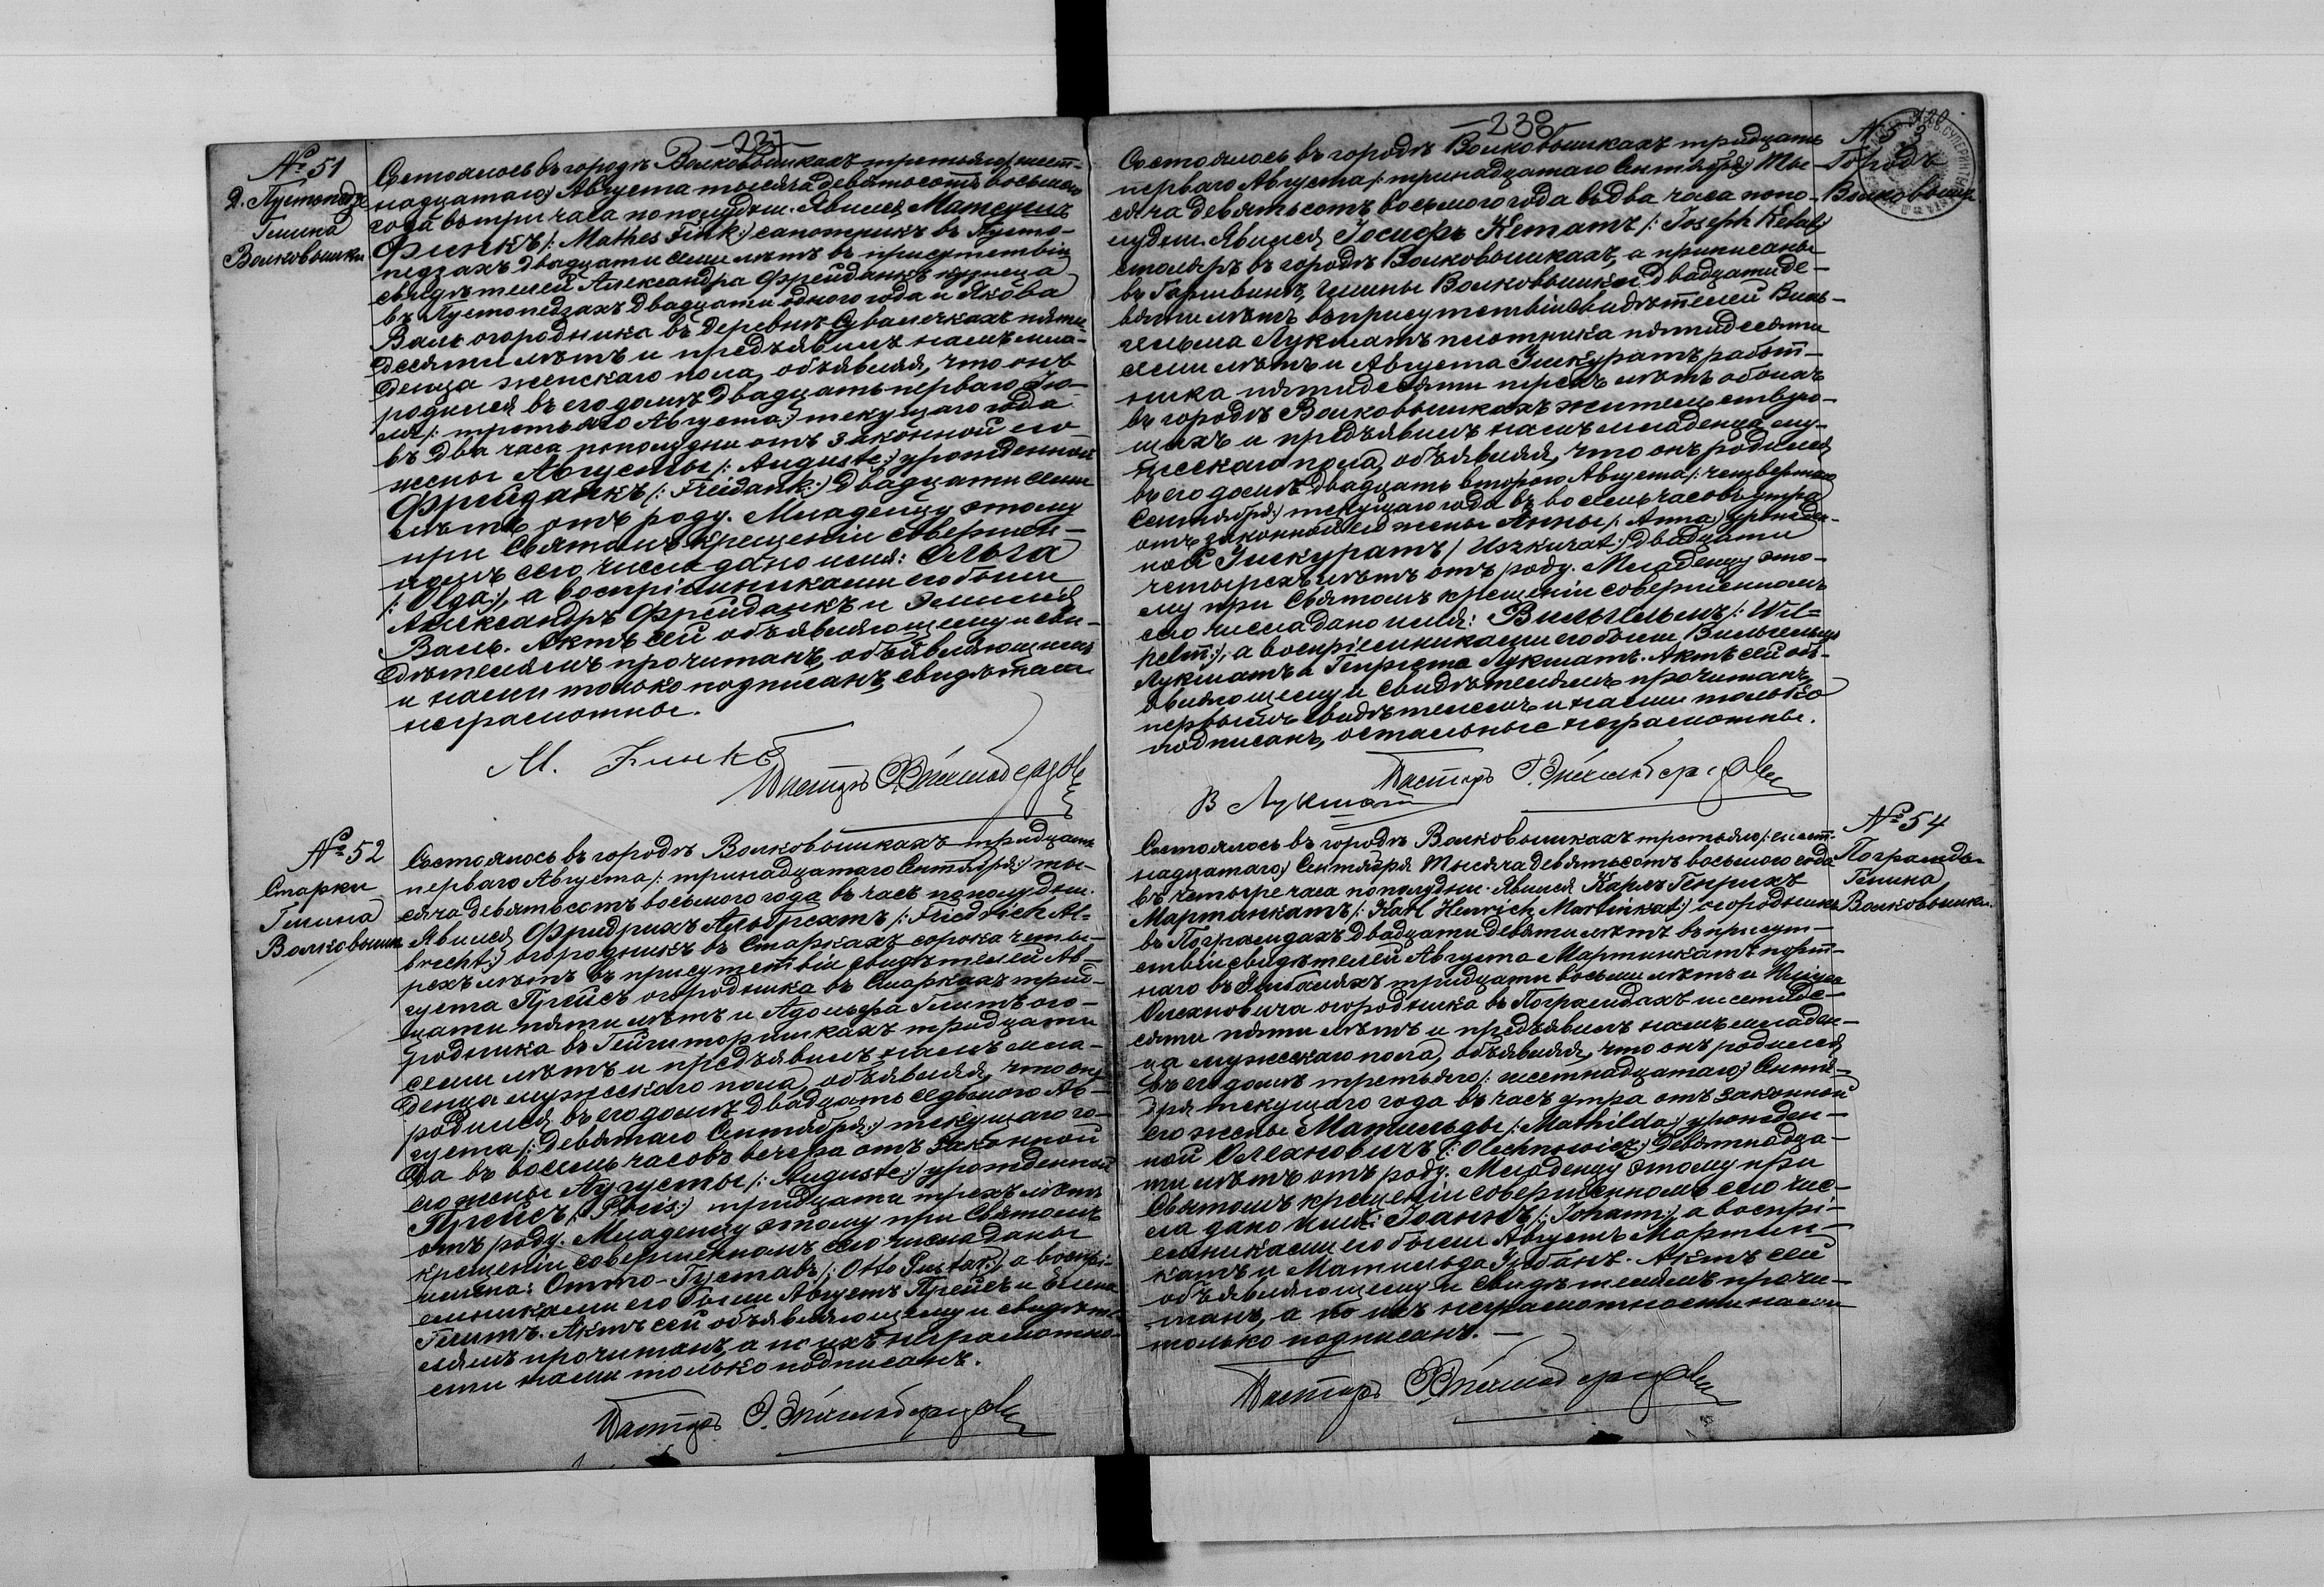 -237-
№ 51
Д. Пустопедзе
Гмина
Волковышки
Состоялось въ городѣ Волковышкахъ третьяго /: шест-
надцатаго :/ Августа тысяча девятьсотъ восьмого
года въ три часа пополудни. Явился Матеушъ
Финкъ /: Mathes Fink :/ сапожникъ въ Пусто-
педзахъ двадцати семи лѣтъ въ присутствіи
свидѣтелей Александра Фрейданкъ кузнеца
въ Пустопедзахъ двадцати одного года и Якова
Валь огородника въ деревнѣ Сувалечкахъ пяти-
десяти лѣтъ и предъявилъ намъ мла-
денца женскаго пола, объявляя, что онъ
родился въ его домѣ двадцать перваго Ію-
ля /: третьяго Августа :/ текущаго года
въ два часа пополудни отъ законной его
жены Августы /: Auguste :/ урожденной
Фрейданкъ /: Freidank :/ двадцати семи
лѣтъ отъ роду. Младенцу этому
при Святомъ крещеніи совершен-
номъ сего числа дано имя: Ольга
/: Olga :/, а воспріемниками его были
Александръ Фрейданкъ и Эмилія
Валь. Актъ сей объявляющему и сви-
дѣтелямъ прочитанъ, объявляющимъ
и нами только подписанъ, свидѣтели
неграмотны.
М. Финкъ
Пасторъ
№ 52
Старки
Гмина
Волковышки
Состоялось въ городѣ Волковышкахъ тридцать
перваго Августа /: тринадцатаго Сентября :/ ты-
сяча девятьсотъ восьмого года въ часъ пополудни.
Явился Фридрихъ Альбрехтъ /: Friedrich Al-
brecht :/ огородникъ въ Старкахъ сорока четы-
рехъ лѣтъ въ присутствіи свидѣтелей Ав-
густа Прейсъ огородника въ Старкахъ трид-
цати пяти лѣтъ и Адольфа Гмитъ ого-
родника въ тридцати
семи лѣтъ и предъявилъ намъ мла-
денца мужескаго пола, объявляя, что онъ
родился въ его домѣ двадцать седьмого Ав-
густа /: девятаго Сентября :/ текущаго го-
да въ восемь часовъ вечера отъ законной
его жены Аугусты /: Auguste :/ урожденной
Прейсъ /: Preis :/ тридцати трехъ лѣтъ
отъ роду. Младенцу этому при Святомъ
крещеніи совершенномъ сего числа даны
имена: Отто-Густавъ /: Otto Gustav :/, а воспрі-
емниками его были Августъ Прейсъ и Елена
Гмитъ. Актъ сей объявляющему и свидѣте-
лямъ прочитанъ, а по ихъ неграмотно-
сти нами только подписанъ.
Пасторъ
-238-
№ 53
Городъ
Волковышки
Состоялось въ городѣ Волковышкахъ тридцать
перваго Августа /: тринадцатаго Сентября :/ ты-
сяча девятьсотъ восьмого года въ два часа попо-
лудни. Явился Іосифъ Кетатъ /: Joseph Ketat :/
столяръ въ городѣ Волковышкахъ, а приписаны
въ гмины Волковышки двадцати де-
вяти лѣтъ въ присутствіи свидѣтелей Виль-
гельма Лукшатъ плотника пятидесяти
семи лѣтъ и Августа Ушкуратъ работ-
ника пятидесяти трехъ лѣтъ обоихъ
въ городѣ Волковышкахъ жительствую-
щихъ и предъявилъ намъ младенца му-
жескаго пола, объявляя, что онъ родился
въ его домѣ двадцать второго Августа /: четвертаго
Сентября :/ текущаго года въ восемь часовъ утра
отъ законной его жены Анны /: Anna :/ урожден-
ной Ушкуратъ /: Uszkurat :/ двадцати
четырехъ лѣтъ отъ роду. Младенцу это-
му при Святомъ крещеніи совершенномъ
сего числа дано имя: Вильгельмъ /: Wil-
helm :/, а воспріемниками его были Вильгельмъ
Лукшатъ и Генріета Лукшатъ. Актъ сей объ-
являющему и свидѣтелямъ прочитанъ,
первымъ свидѣтелемъ и нами только
подписанъ, остальные неграмотны.
В Лукшат
Пасторъ
№ 54
Пограмды
Гмина
Волковышки
Состоялось въ городѣ Волковышкахъ третьяго /: шест-
надцатаго :/ Сентября тысяча девятьсотъ восьмого года
въ четыре часа пополудни. Явился Карлъ Генрихъ
Мартинкатъ /: Karl Henrich Martinkat :/ огородникъ
въ Пограмдахъ двадцати девяти лѣтъ въ присут-
ствіи свидѣтелей Августа Мартинкатъ порт-
наго въ тридцати восьми лѣтъ и
Олехновича огородника въ Пограмдахъ шестиде-
сяти пяти лѣтъ и предъявилъ намъ младен-
ца мужескаго пола, объявляя, что онъ родился
въ его домѣ третьяго /: шестнадцатаго :/ Сентя-
бря текущаго года въ часъ утра отъ законной
его жены Матильды /: Mathilda :/ урожден-
ной Олехновичъ /: Olechnowicz :/ девятнадца-
ти лѣтъ отъ роду. Младенцу этому при
Святомъ крещеніи совершенномъ сего чис-
ла дано имя: Іоаннъ /: Johann :/, а воспрі-
емниками его были Августъ Мартин-
катъ и Матильда Урбанъ. Актъ сей
объявляющему и свидѣтелямъ прочи-
танъ, а по ихъ неграмотности нами
только подписанъ. —
Пасторъ